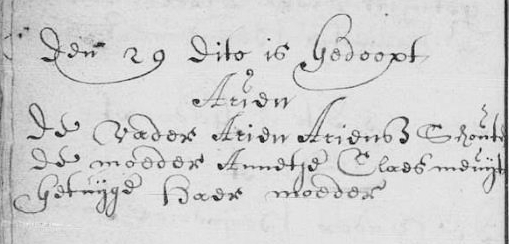 den 29 dito is gedoopt
Arien
de vader Arien Ariensz Schoute
de moeder Annetje Claes meuijt
getuijge haer moeder